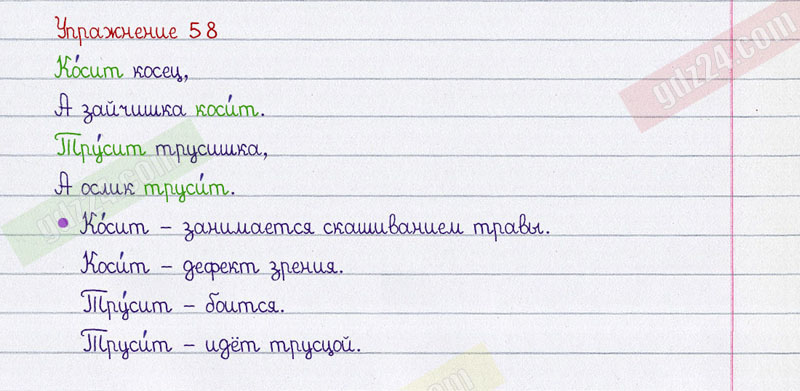 Упражнение 58
Ко́сит косец,
А зайчишка коси́т.
Тру́сит трусишка,
А ослик труси́т.
• Ко́сит – занимается скашиванием травы.
Коси́т – дефект зрения.
Тру́сит – боится.
Труси́т – идёт трусцой.
gdz24.com
gdz24.com